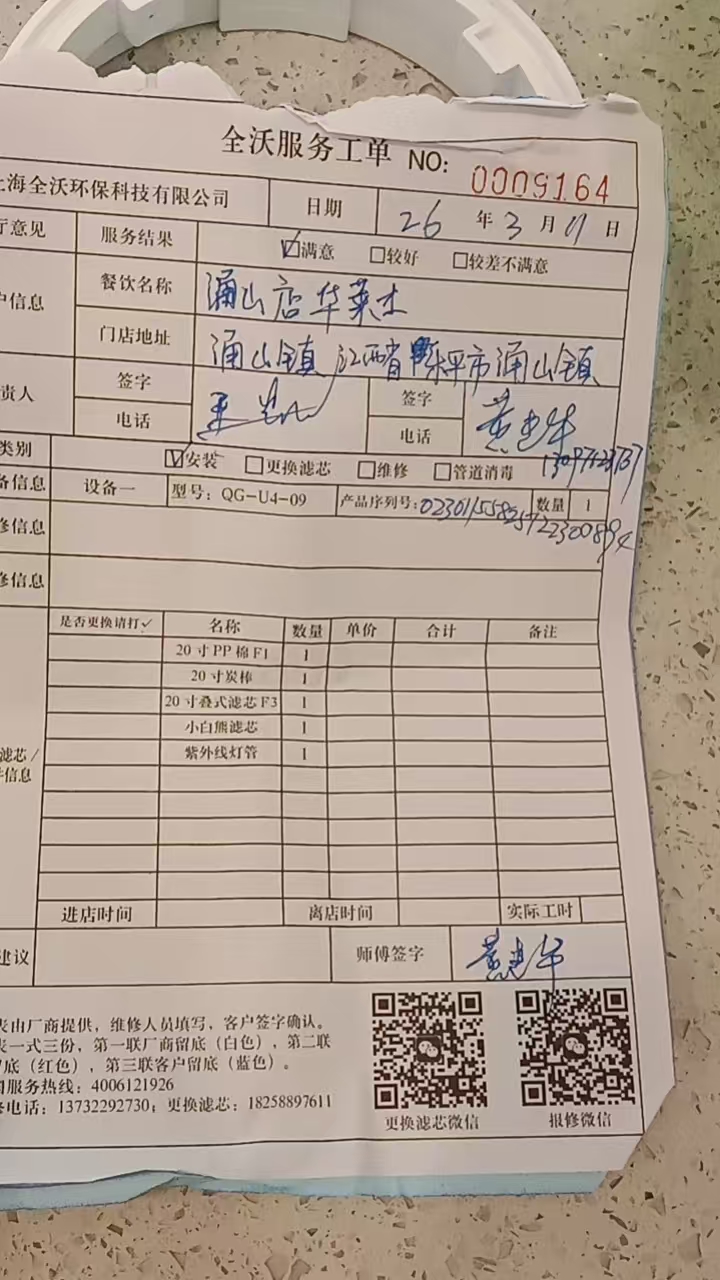 全沃服务工单 NO: 0009164
上海全沃环保科技有限公司 日期 26 年 3 月 01 日
厅意见 服务结果 ☑满意 □较好 □较差不满意
户信息 餐饮名称 涌山店华莱士
门店地址 涌山镇 江西省 乐平市涌山镇
责人 签字 签字 黄忠华
电话 电话
类别 ☑安装 □更换滤芯 □维修 □管道消毒
备信息 设备一 型号：QG-U4-09 产品序列号： 数量 1
修信息
修信息
是否更换请打✓ 名称 数量 单价 合计 备注
20 寸 PP 棉 F1 1
20 寸炭棒 1
20 寸叠式滤芯 F3 1
小白熊滤芯 1
紫外线灯管 1
滤芯 /
件信息
进店时间 离店时间 实际工时
建议 师傅签字
表由厂商提供，维修人员填写，客户签字确认。
表一式三份，第一联厂商留底（白色），第二联
留底（红色），第三联客户留底（蓝色）。
服务热线：4006121926
修电话：13732292730；更换滤芯：18258897611
更换滤芯微信 报修微信